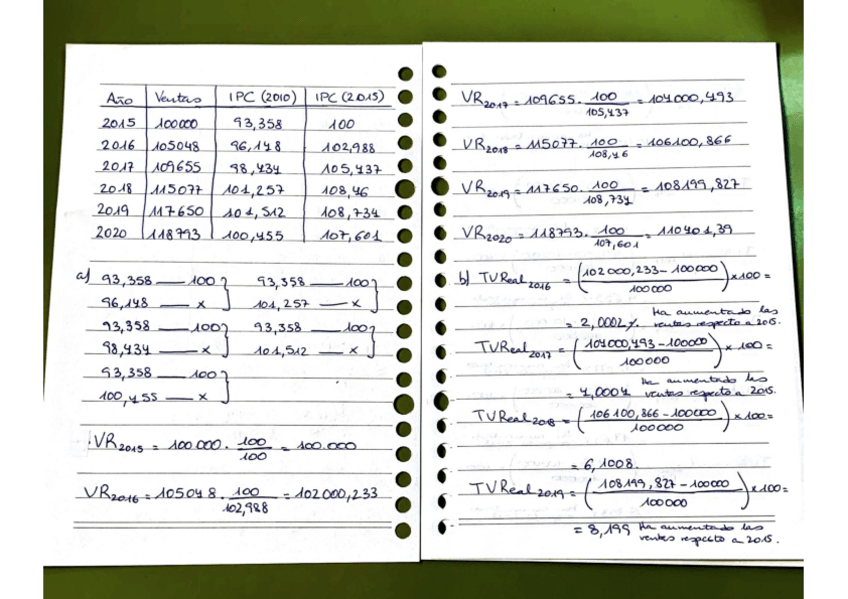 Año Ventas IPC (2010) IPC (2015)
2015 100000 93,358 100
2016 105048 96,148 102,988
2017 109655 98,434 105,437
2018 115077 101,257 108,46
2019 117650 101,512 108,734
2020 118793 100,455 107,601
a) 93,358 — 100 93,358 — 100
96,148 — x 101,257 — x
93,358 — 100 93,358 — 100
98,434 — x 101,512 — x
93,358 — 100
100,455 — x
VR2015 = 100.000 · 100/100 = 100.000
VR2016 = 105048 · 100/102,988 = 102000,233
VR2017 = 109655 · 100/105,437 = 104000,493
VR2018 = 115077 · 100/108,46 = 106100,866
VR2019 = 117650 · 100/108,734 = 108199,827
VR2020 = 118793 · 100/107,601 = 110401,39
b) TVReal2016 = (102000,233 - 100000 / 100000) x 100 =
= 2,0002%. Ha aumentado las
ventas respecto a 2015.
TVReal2017 = (104000,493 - 100000 / 100000) x 100 =
= 4,0004 Ha aumentado las
ventas respecto a 2015.
TVReal2018 = (106100,866 - 100000 / 100000) x 100 =
= 6,1008.
TVReal2019 = (108199,827 - 100000 / 100000) x 100 =
= 8,199 Ha aumentado las
ventas respecto a 2015.